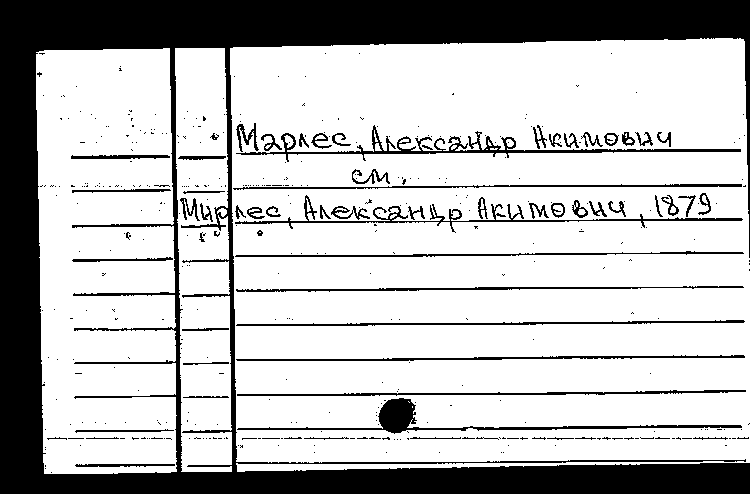 Марлес, Александр Акимович
см.
Мирлес, Александр Акимович, 1879